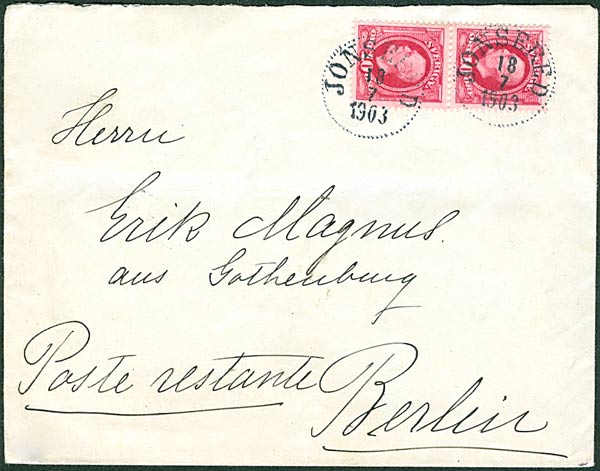 SVERIGE
SVERIGE
JONSERED
18
7
1903
JONSERED
18
7
1903
Herrn
Erik Magnus.
aus Gothenburg
Poste restante
Berlin